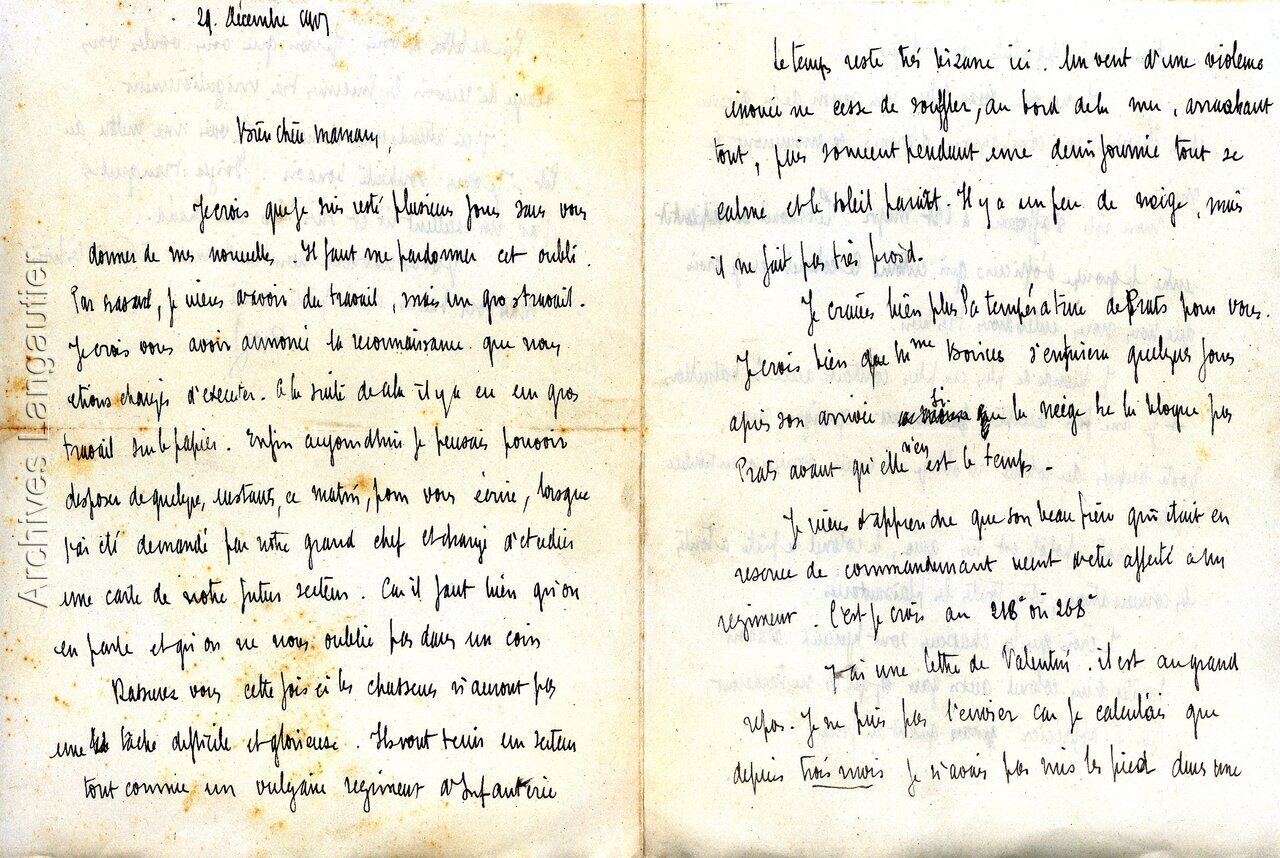 29. décembre 1917
Bien chère maman,
Je crois que je suis resté plusieurs jours sans vous
donner de mes nouvelles. Il faut me pardonner cet oubli.
Par hasard, je viens d'avoir du travail, mais un gros travail.
Je crois vous avoir annoncé la reconnaissance que nous
étions chargés d'exécuter. A la suite de cela il y a eu un gros
travail sur le papier. Enfin aujourdhui je pensais pouvoir
disposer de quelques instants, ce matin, pour vous écrire, lorsque
j'ai été demandé par notre grand chef et chargé d'étudier
une carte de notre futur secteur. Car il faut bien qu'on
en parle et qu'on ne nous oublie pas dans un coin
Rassurez vous cette fois ci les chasseurs n'auront pas
une tâche difficile et glorieuse. Ils vont tenir un secteur
tout comme un vulgaire regiment d'Infanterie
Le temps reste très bizarre ici. Un vent d'une violence
inouïe ne cesse de souffler, au bord de la mer, arrachant
tout, puis souvent pendant une demi journée tout se
calme et le soleil paraît. Il y a un peu de neige, mais
il ne fait pas très froid.
Je crains bien plus la température de Prats pour vous.
Je crois bien que Mme s'enfuiera quelques jours
après son arrivée si que la neige ne la bloque pas
Prats avant qu'elle n'en est le temps -
Je viens d'apprendre que son beau frère qui était en
reserve de commandemant vient d'etre affecté à un
regiment. C'est je crois au 218e ou 268e
J'ai une lettre de Valentin. il est au grand
repos. Je ne puis pas l'envier car je calculais que
depuis trois mois je n'avais pas mis les pied dans une
Archives Langautier